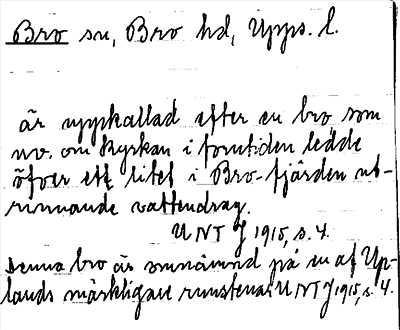 Bro sn, Bro hd, Upps. l.
är uppkallad efter en bro som
no. om kyrkan i forntiden ledde
öfver ett litet i Bro-fjärden ut-
rinnande vattendrag.
UNT J 1915, s. 4.
Denna bro är omnämnd på en af Up-
lands märkligare runstenar UNT J 1915, s. 4.